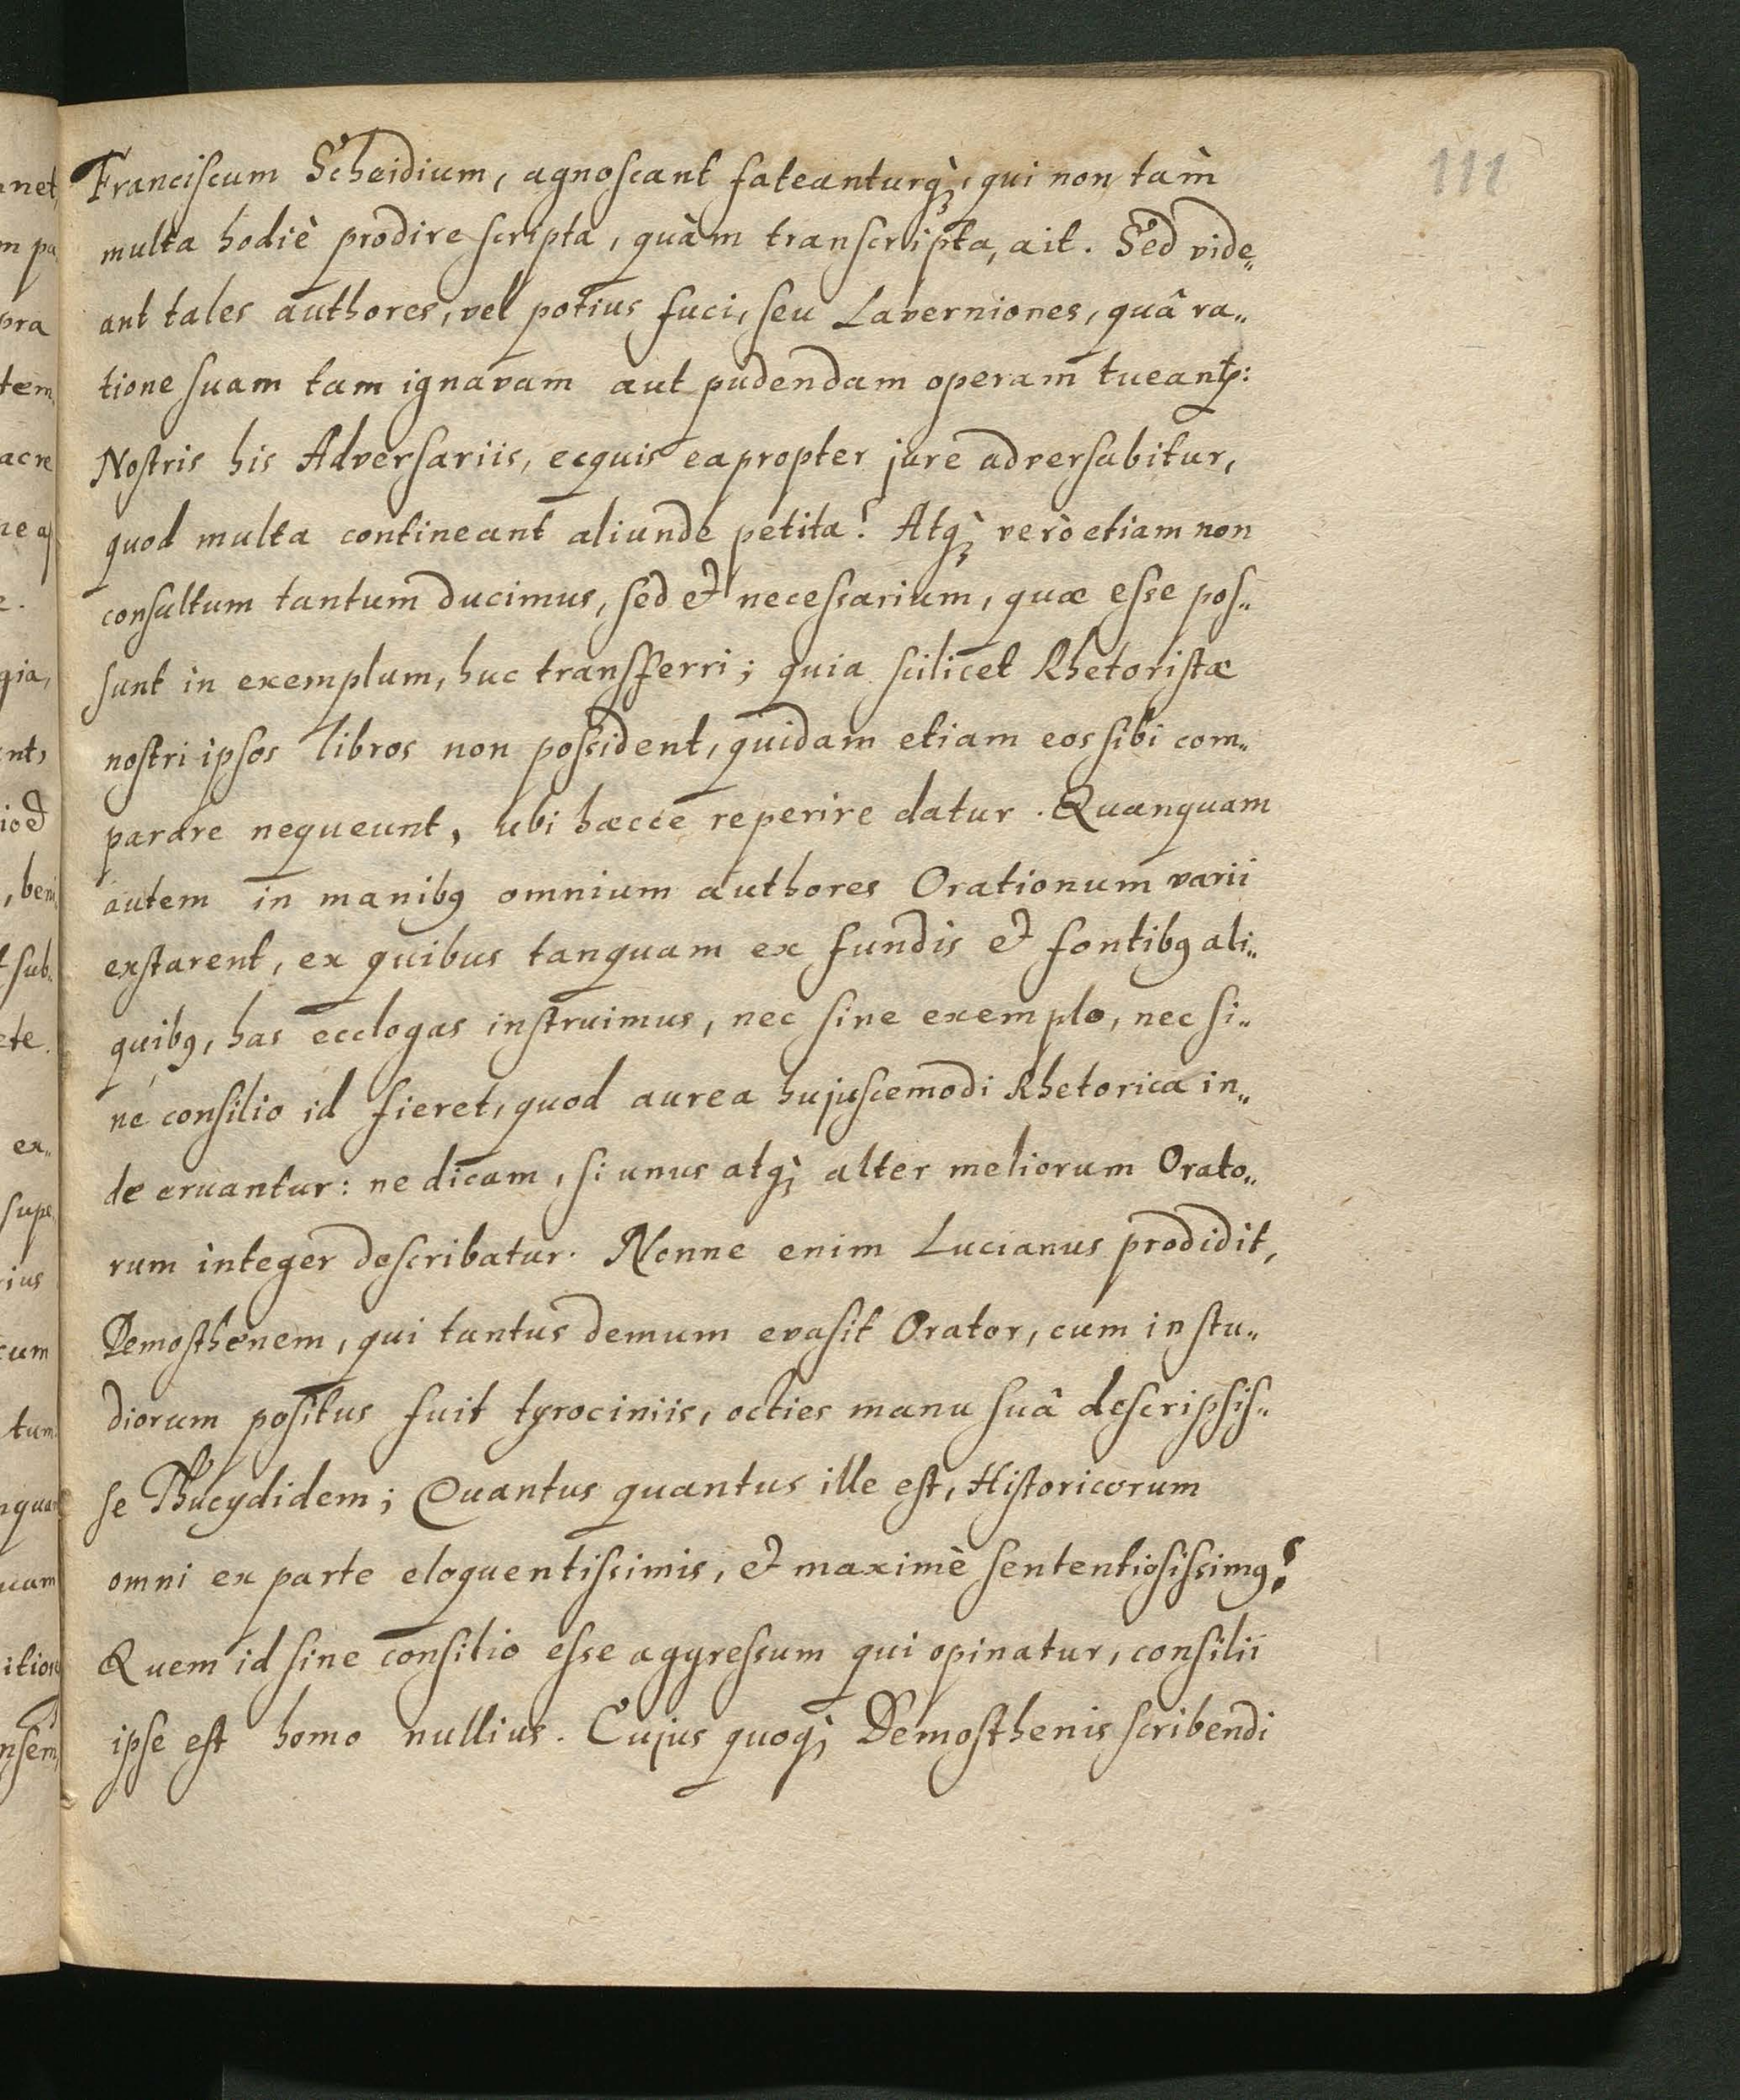 111
Franciſcum Scheidium, agnoſcant fateanturq́;, qui non tàm
multa hodiè prodire ſcripta, quàm tranſcripta, ait. Sed vide„
ant tales authores, vel potius fuci, ſeu Laverniones, quâ ra„
tione ſuam tam ignavam aut pudendam operam tueantꝛ:
Noſtris his Adverſariis, ecquis eapropter jure adverſabitur,
quod multa contineant aliunde petita? Atq́; verò etiam non
conſultum tantum ducimus, ſed & neceſsarium, quæ eſse poſ„
ſunt in exemplum, huc transferri; quia ſcilicet Rhetoriſtæ
noſtri ipſos libros non poſsident, quidam etiam eos ſibi com„
parare nequeunt, ubi hæcce reperire datur. Quanquam
autem in manibꝰ omnium authores Orationum varii
exſtarent, ex quibus tanquam ex fundis & fontibꝰ ali„
quibꝰ, has ecclogas inſtruimus, nec ſine exemplo, nec ſi„
ne conſilio id fieret, quod aurea hujuſcemodi Rhetorica in„
de eruantur: ne dicam, ſi unus atq́; alter meliorum Orato„
rum integer deſcribatur. Nonne enim Lucianus prodidit,
Demoſthenem, qui tantus demum evaſit Orator, cum in ſtu„
diorum poſitus fuit tyrociniis, octies manu ſuâ deſcripſiſ„
ſe Thucydidem; Quantus quantus ille eſt, Hiſtoricorum
omni ex parte eloquentiſsimis, & maximè ſententioſiſsimꝰ?
Quem id ſine conſilio eſse aggreſsum qui opinatur, conſilii
ipſe eſt homo nullius. Cujus quoq́; Demoſthenis ſcribendi